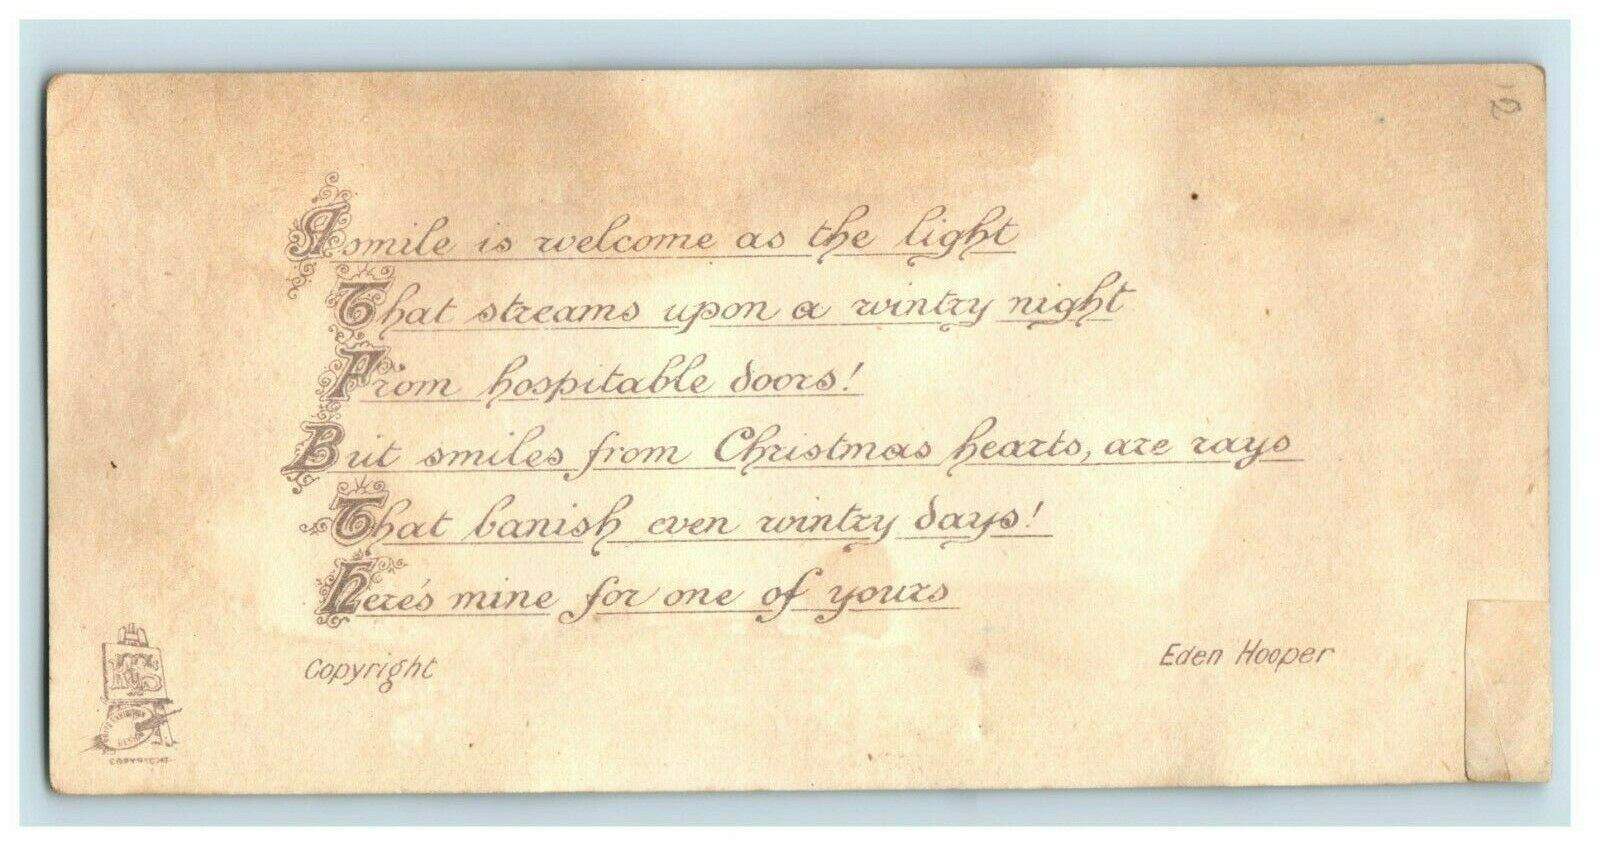 A smile is welcome as the light
That streams upon a wintry night
From hospitable doors!
But smiles from Christmas hearts, are rays
That banish even wintry days!
Here's mine for one of yours
Copyright
Eden Hooper
COPYRIGHT